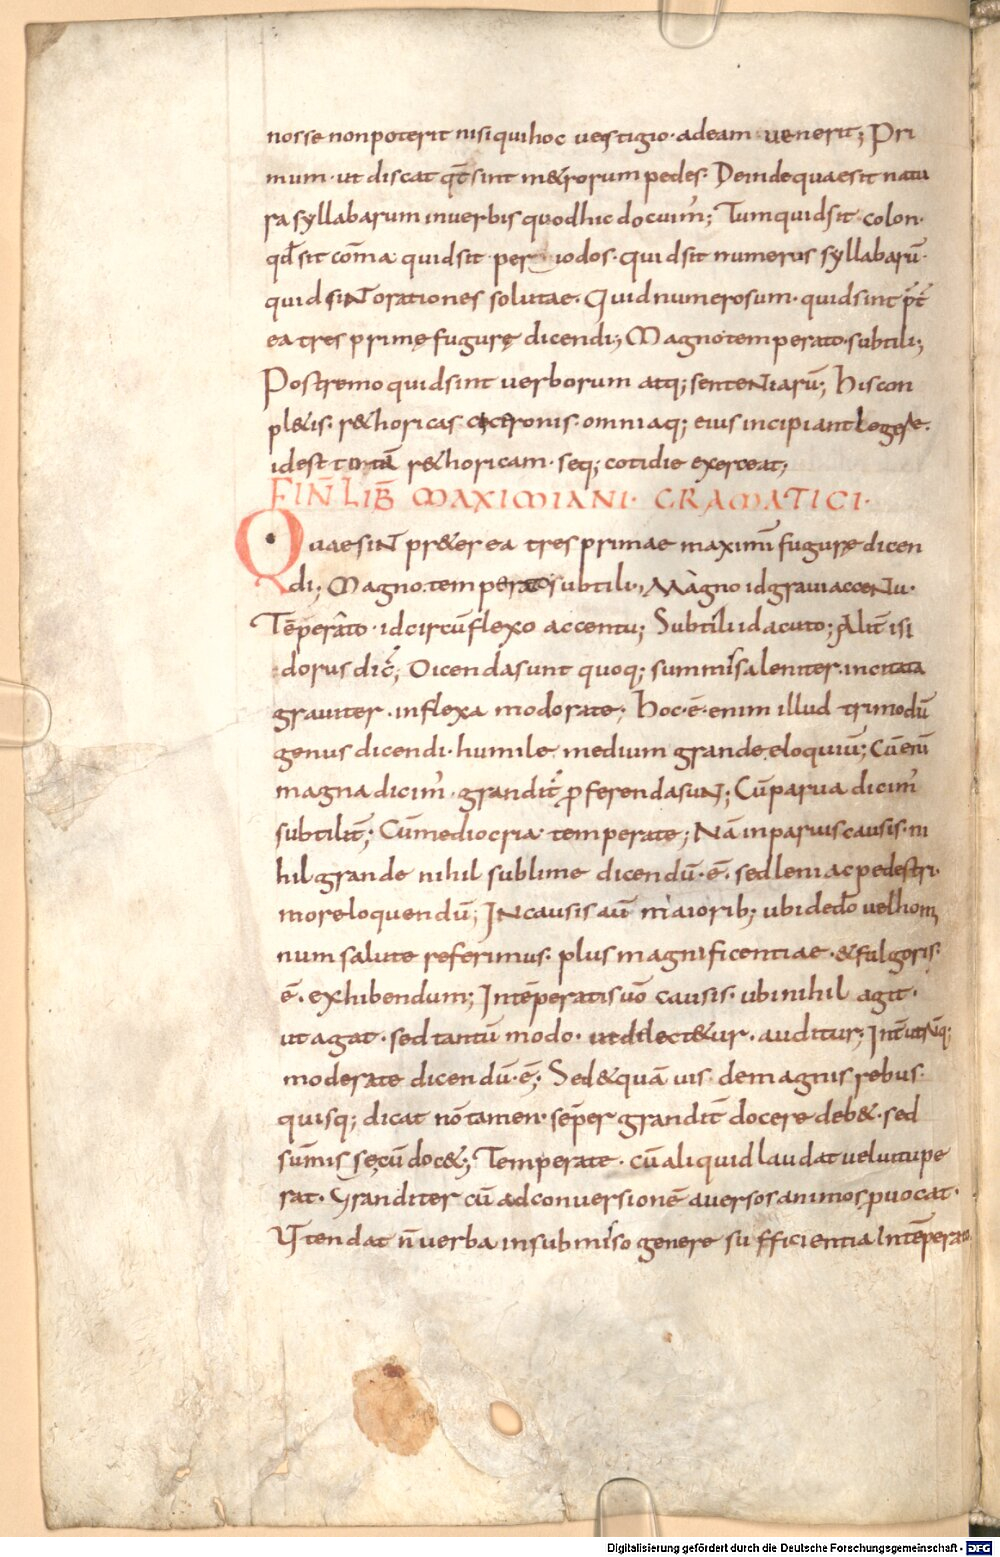 nosse non poterit nisi qui hoc vestigio · adeam venerit; Pri
mum · ut discat q̄t sint m&rorum pedes · Deinde quae sit natu
ra syllabarum in verbis quod hic docuim̄; Tum quid sit colon ·
qđ sit com̄a quid sit per iodos · quid sit numerus syllabarū ·
quid siNT orationes solutae · Quid numerosum · quid sint p̄t̄
ea tres primę fugurę dicendi; Magno temperato · subtili;
Postremo quid sint verborum atq; senteNtiarū; His con
pl&is · r&horicas ciceronis · omniaq; eius incipiant legere ·
id est totā r&horicam · seq; cotidie exerceat;
FIN̄ LIB̄ MAXIMIANI · GRAMATICI ·
Quae siNT pr&er ea tres primae maximi fugurę dicen
di; Magno · temperato subtili; Magno id gravi acceNtu ·
Tēperato · id circūflexo accentu; Subtili id acuto; Alit̄ isi
dorus dic̄; Dicenda sunt quoq; summisa leniter · incitata
graviter · inflexa modorate; Hoc · ē · enim illud trimodū
genus dicendi · humile medium grande eloquiū; Cū enī
magna dicim̄ · grandit̄ p̄ferenda suNT; Cū parva dicim̄
subtilit̄; Cū mediocria temperate; Nā in parvis causis · ni
hil grande nihil sublime dicendū · ē · sed leni ac pedestri ·
more loquendū; IN causis aū maiorib; ubi de dō vel hom
num salute referimus · plus magnificentiae · & fulgoris ·
ē · exhibendum; In tēperatis vō causis · ubi nihil agit ·
ut agat · sed tantū modo · ut delect&ur · auditur; Int̄ utrūq;
moderate dicendū · ē; Sed & quā vis de magnis rebus ·
quisq; dicat nō tamen · sēper grandit̄ docere deb& · sed
sūmis sę cū doc&; Temperate · cū aliquid laudat vel vitupe
rat · Granditer cū ad conversionē aversos animos p̄vocat ·
Utendat n̄ verba in submiso genere sufficientia In tēperato